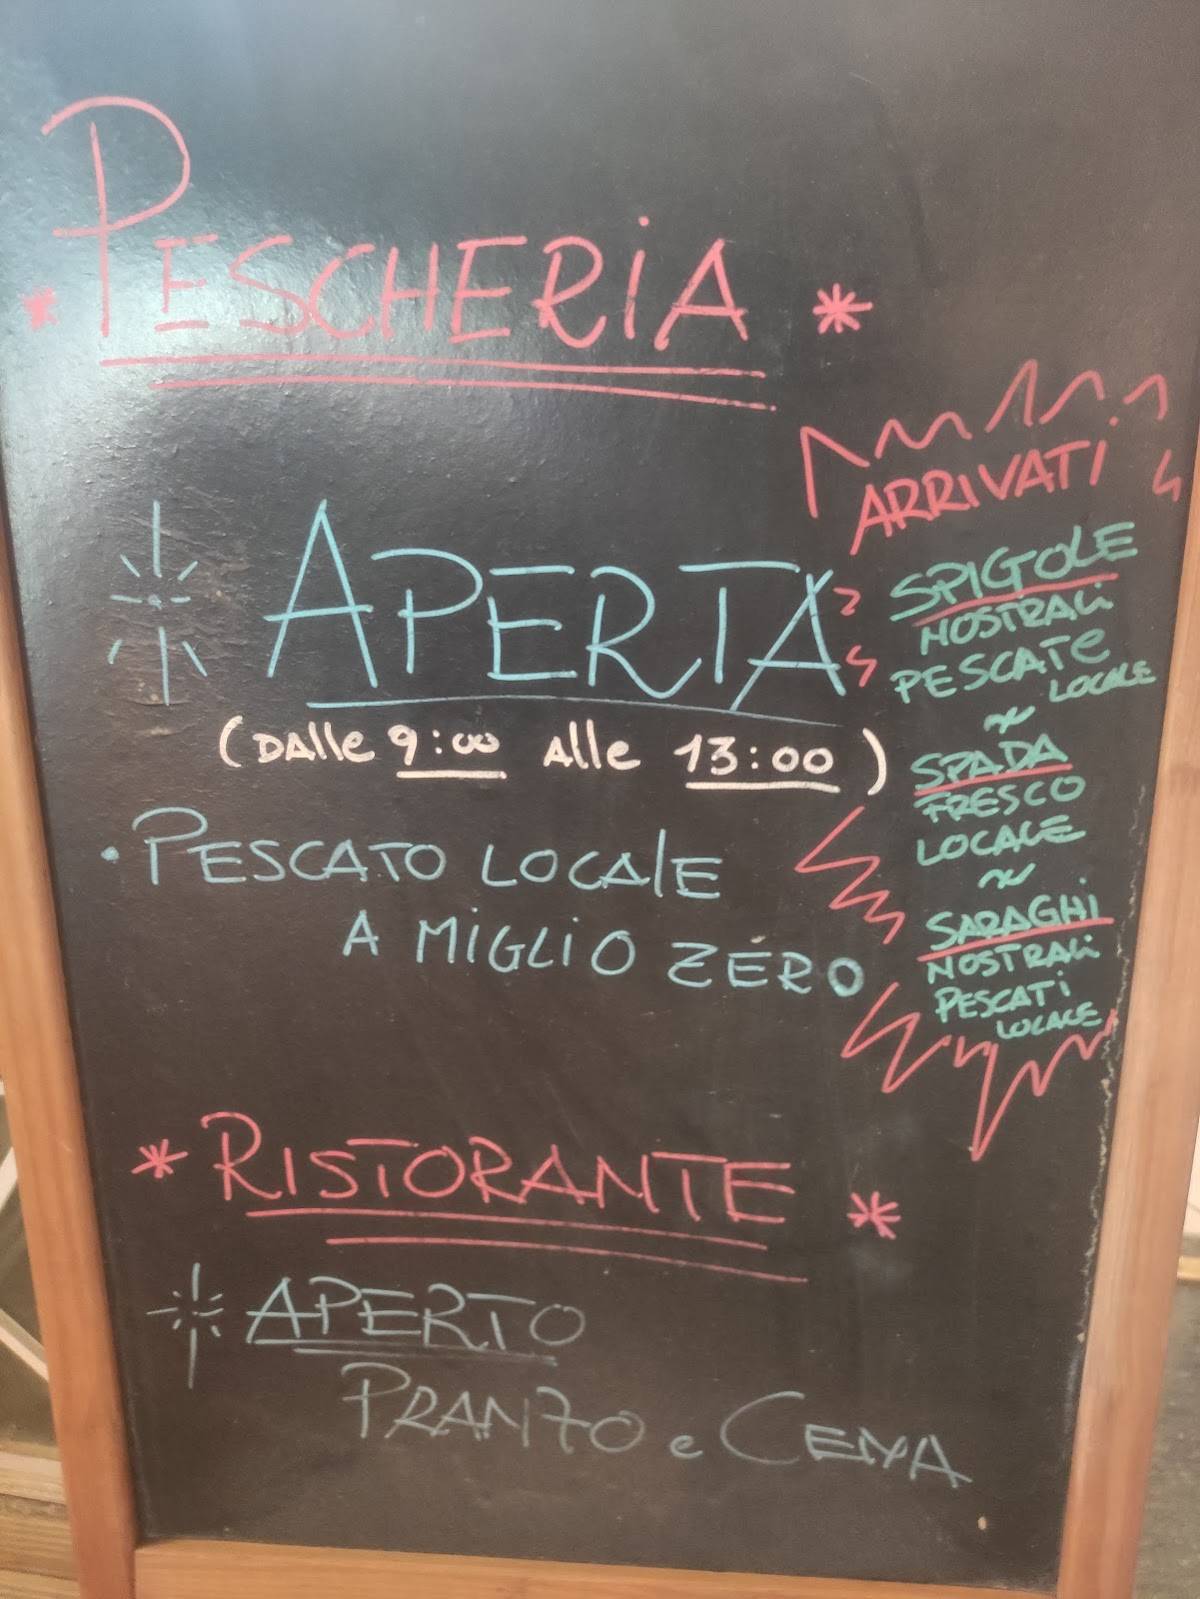 PESCHERIA
APERTA
(DAlle 9:00 Alle 13:00)
PESCATO LOCAlE
A MIGLIO ZERO
ARRIVATI
SPIGOLE
NOSTRALI
PESCATE
LOCALE
SPADA
FRESCO
LOCALE
SARAGHI
NOSTRALI
PESCATI
LOCALE
RISTORANTE
APERTO
PRANZO e CENA